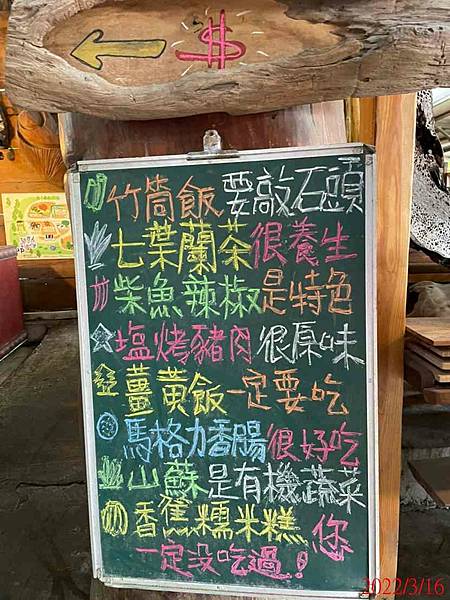 $
竹筒飯要敲石頭
七葉蘭茶很養生
柴魚辣椒是特色
塩烤豬肉很原味
薑黃飯一定要吃
馬格力香腸很好吃
山蘇是有機蔬菜
香蕉糯米糕你
一定没吃過!
2022/3/16